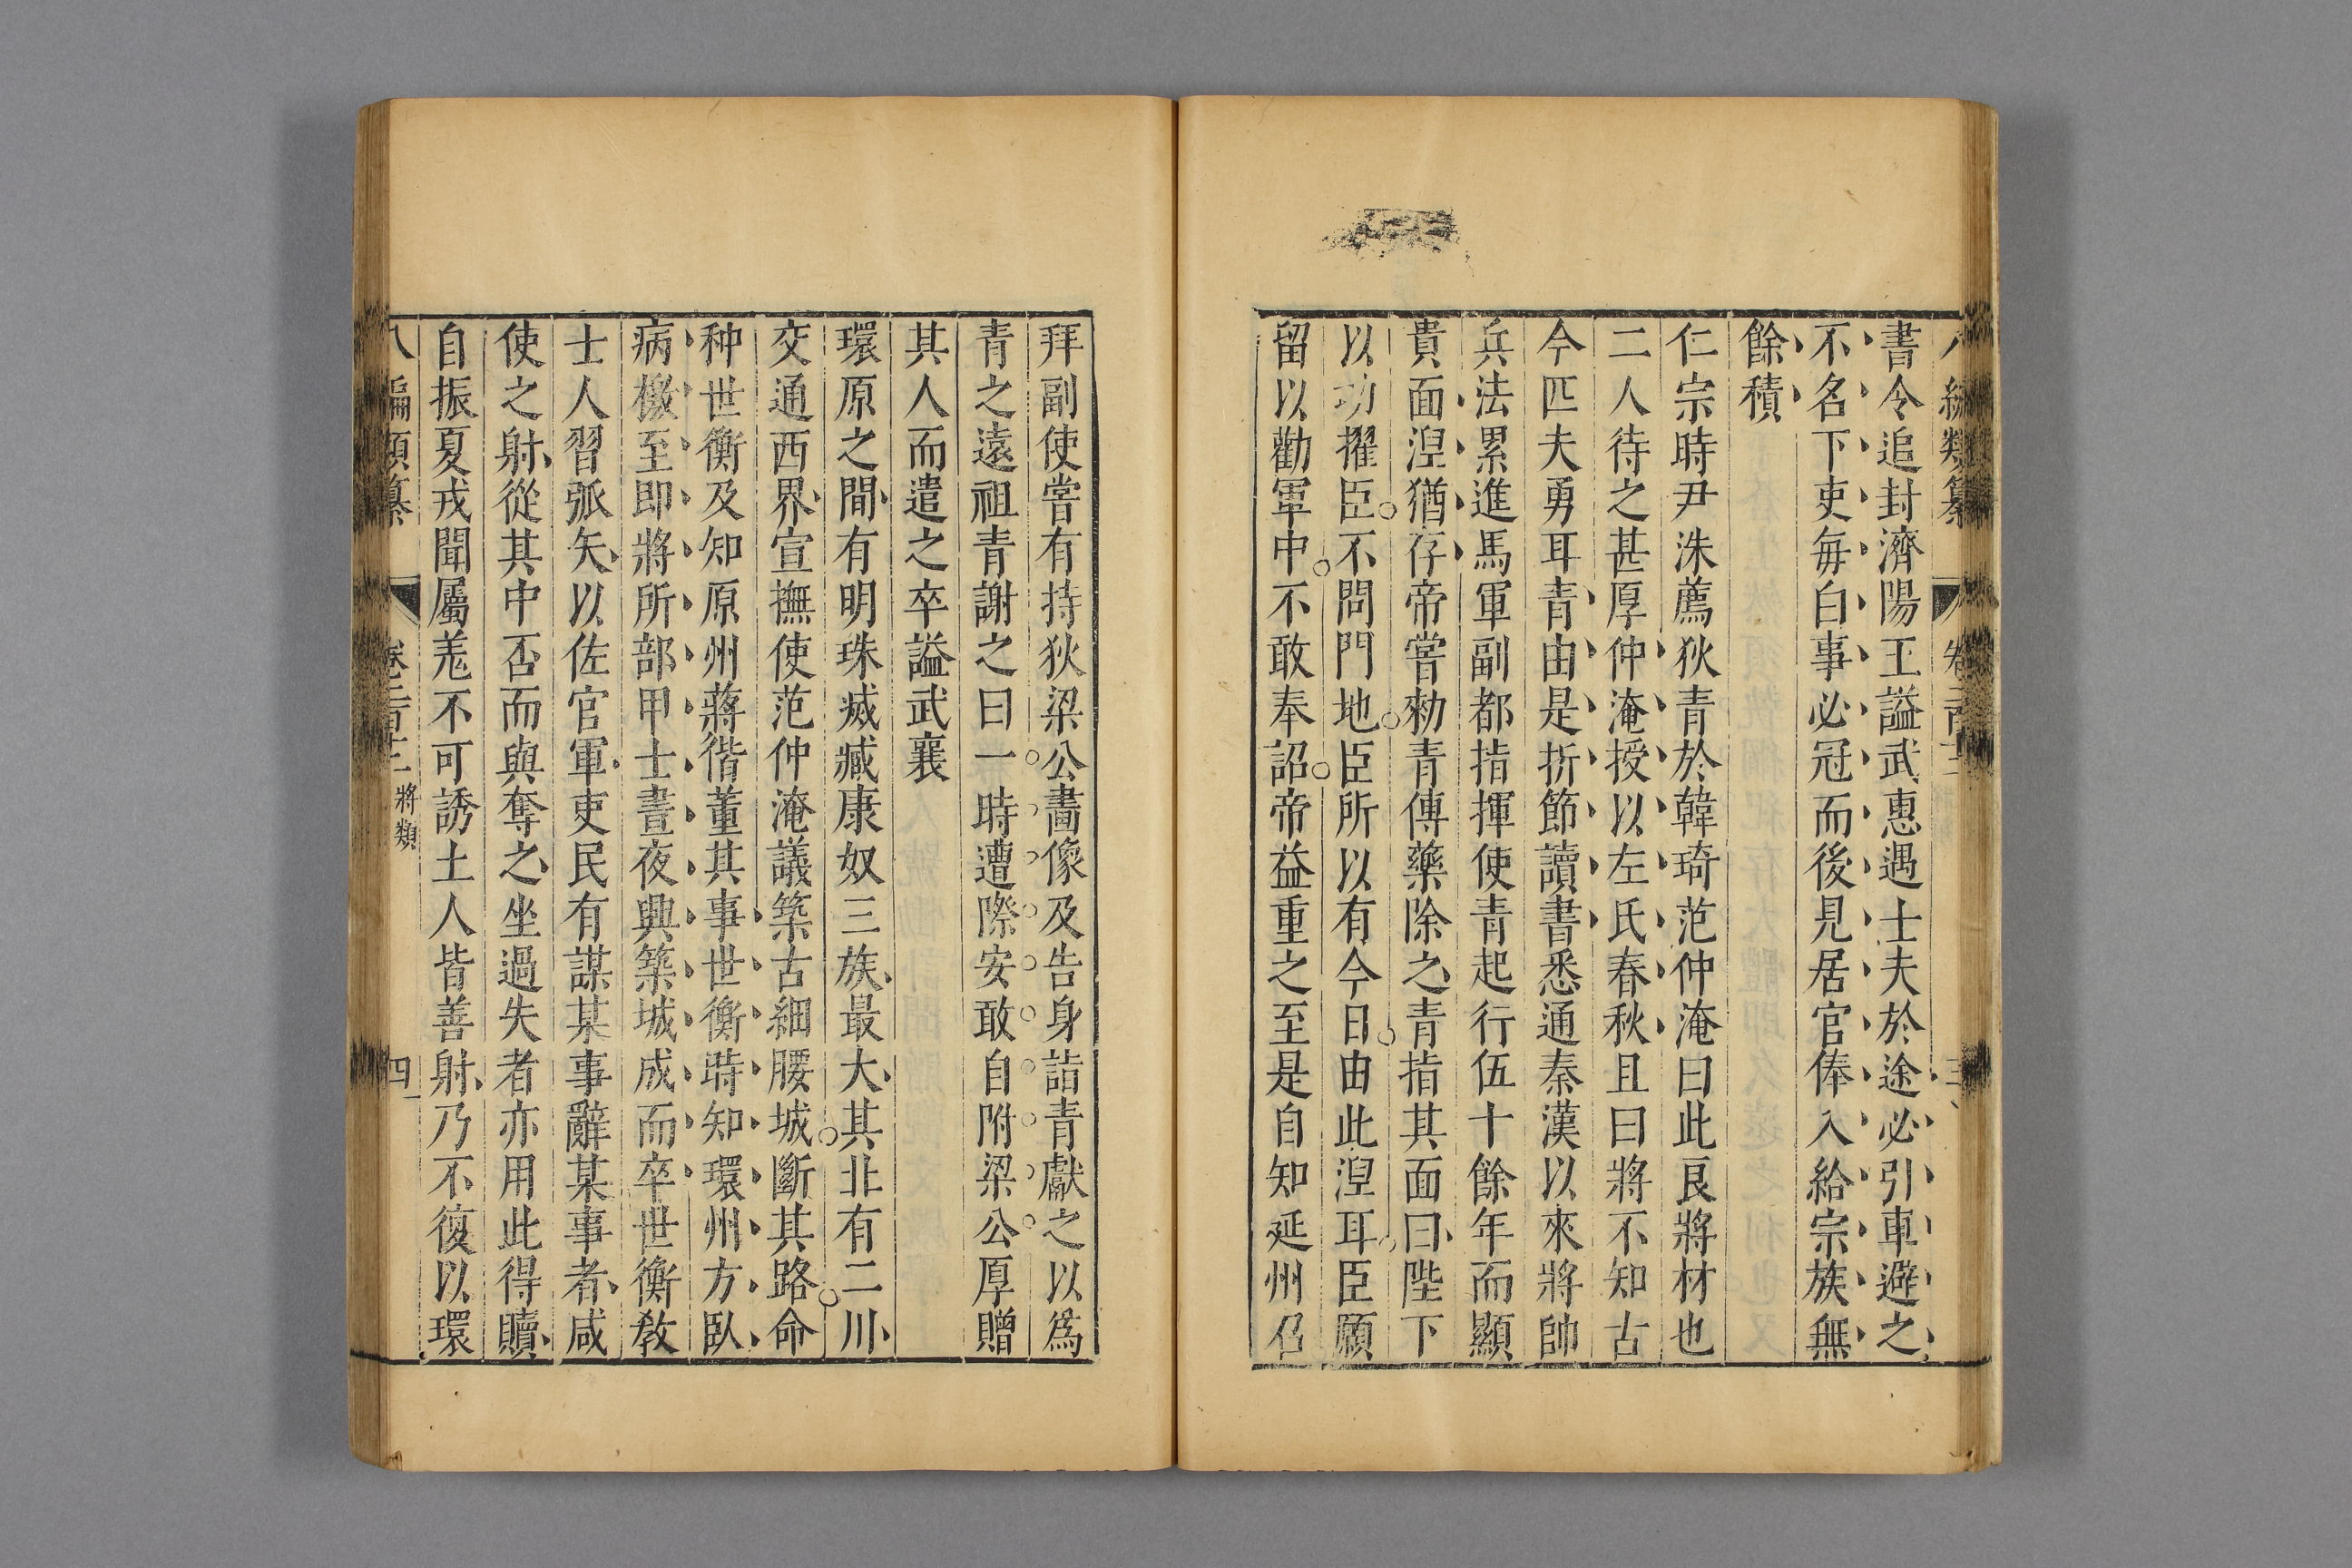 書令追封濟陽王謚武惠遇士夫於途必引車避之
不名下吏每白事必冠而後見居官俸入給宗族無
餘積
仁宗時尹洙薦狄青於韓琦范仲淹曰此良將材也
二人待之甚厚仲淹授以左氏春秋且曰將不知古
今匹夫勇耳青由是折節讀書悉通秦漢以來將帥
兵法累進馬軍副都指揮使青起行伍十餘年而顯
貴面湼猶存帝嘗勑青傅藥除之青指其面曰陛下
以功擢臣不問門地臣所以有今日由此湼耳臣願
留以勸軍中不敢奉詔帝益重之至是自知延州召
拜副使嘗有持狄梁公畵像及告身詣青獻之以爲
青之遠祖青謝之曰一時遭際安敢自附梁公厚贈
其人而遣之卒謚武襄
環原之間有明珠㓕臧康奴三族最大其北有二川
交通西界宣撫使范仲淹議築古細腰城斷其路命
种世衡及知原州蔣偕董其事世衡時知環州方臥
病檄至即將所部甲士晝夜興築城成而卒世衡敎
士人習弧矢以佐官軍吏民有謀某事辭某事者咸
使之射從其中否而與奪之坐過失者亦用此得贖
自振夏戎聞屬羌不可誘土人皆善射乃不復以環
八編類纂 卷二百十二 將類 四